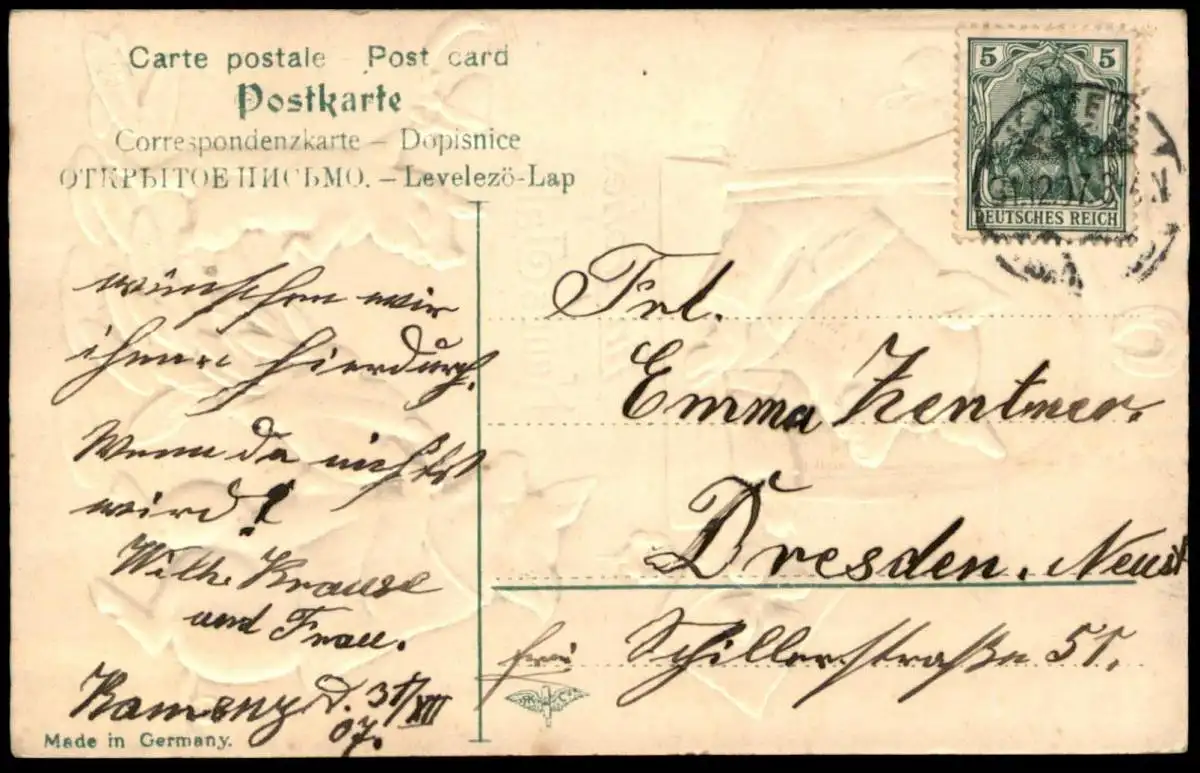 Carte postale Post card
Postkarte
Correspondenzkarte – Dopisnice
ОТКРЫТОЕ ПИСЬМО. – Levelezö-Lap
5 5
DEUTSCHES REICH
31.12.07. 8-9 V
wünschen wir
ihnen hierdurch.
Wenn da nichts
wird!
Wilh. Krause
und Frau.
Kamenz d. 31/XII
07.
Made in Germany.
Frl.
Emma Zentner.
Dresden. Neust
frei Schillerstraße 51.